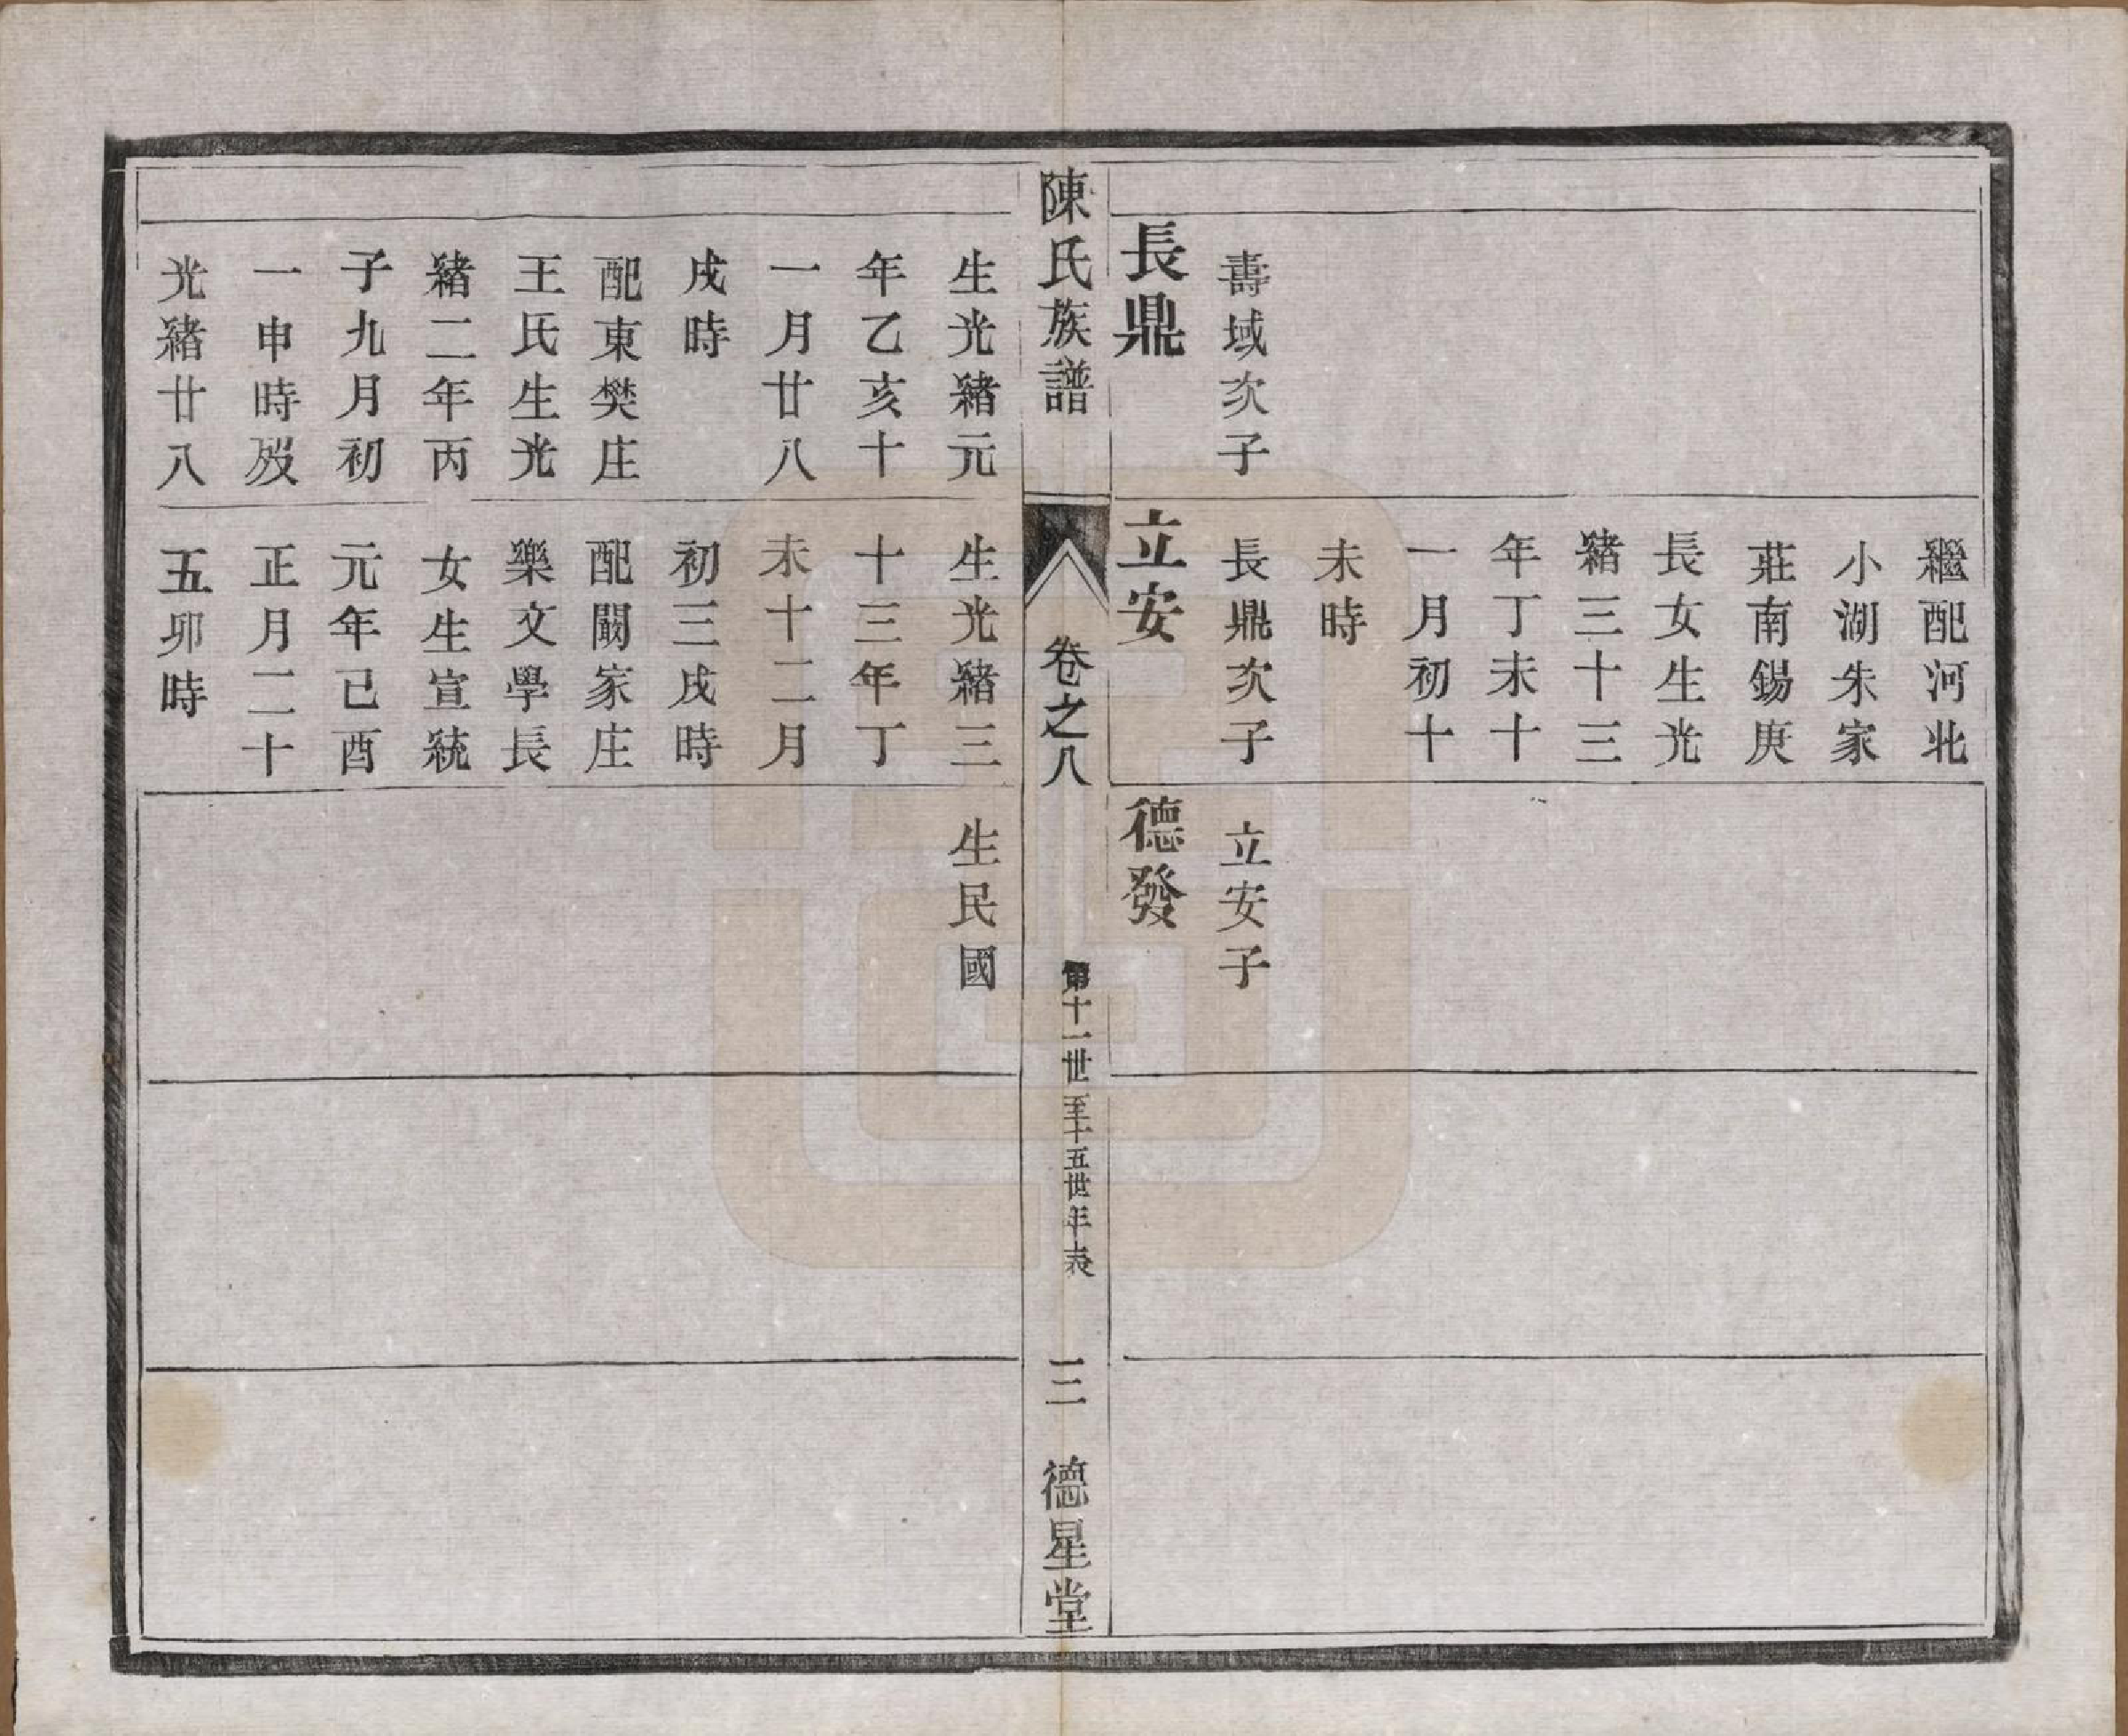 壽域次子
長鼎
繼配河北
小湖朱家
莊南錫庚
長女生光
緒三十三
年丁未十
一月初十
未時
長鼎次子
立安
立安子
德發
陳氏族譜
卷之八
第十一世至十五世年表
三
德星堂
生光緒元
年乙亥十
一月廿八
戌時
配東樊庄
王氏生光
緒二年丙
子九月初
一申時歿
光緒廿八
生光緒三
十三年丁
未十二月
初三戌時
配闞家庄
樂文學長
女生宣統
元年己酉
正月二十
五卯時
生民國